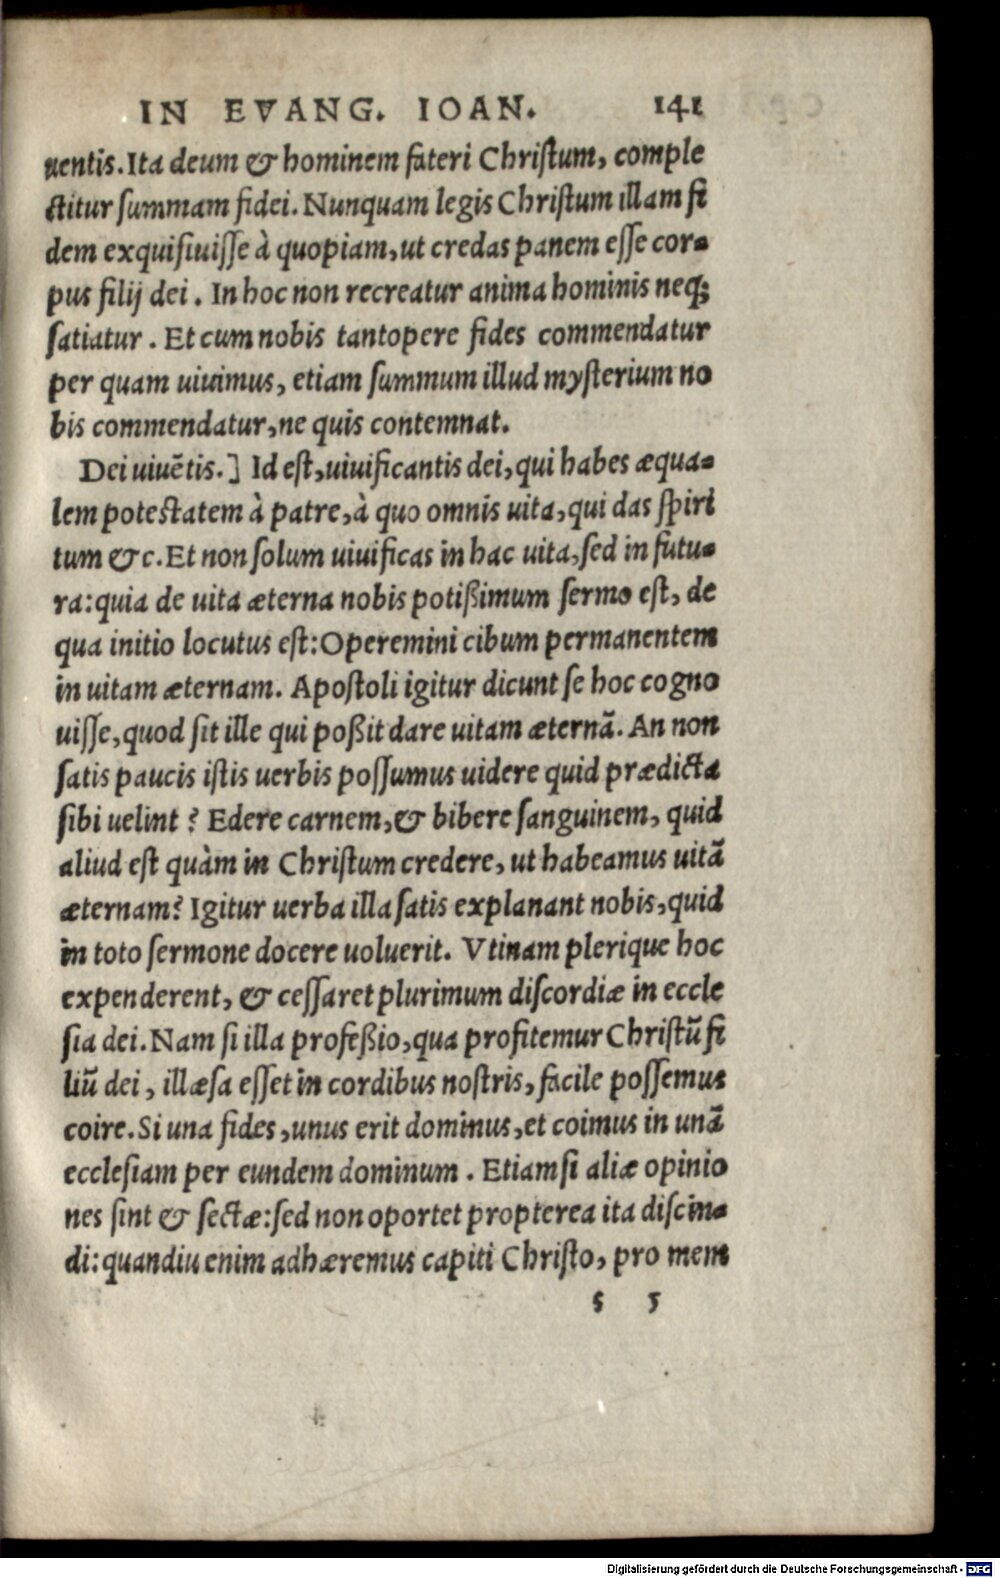 IN EVANG. IOAN. 141
uentis. Ita deum & hominem fateri Christum, comple
ctitur summam fidei. Nunquam legis Christum illam fi
dem exquisiuisse à quopiam, ut credas panem esse cor-
pus filij dei. In hoc non recreatur anima hominis neq;
satiatur. Et cum nobis tantopere fides commendatur
per quam uiuimus, etiam summum illud mysterium no
bis commendatur, ne quis contemnat.
Dei uiuẽtis.] Id est, uiuificantis dei, qui habes æqua-
lem potestatem à patre, à quo omnis uita, qui das spiri
tum &c. Et non solum uiuificas in hac uita, sed in futu-
ra: quia de uita æterna nobis potißimum sermo est, de
qua initio locutus est: Operemini cibum permanentem
in uitam æternam. Apostoli igitur dicunt se hoc cogno
uisse, quod sit ille qui poßit dare uitam æternã. An non
satis paucis istis uerbis possumus uidere quid prædicta
sibi uelint? Edere carnem, & bibere sanguinem, quid
aliud est quàm in Christum credere, ut habeamus uitã
æternam? Igitur uerba illa satis explanant nobis, quid
in toto sermone docere uoluerit. Vtinam plerique hoc
expenderent, & cessaret plurimum discordiæ in eccle
sia dei. Nam si illa profeßio, qua profitemur Christũ fi
liũ dei, illæsa esset in cordibus nostris, facile possemus
coire. Si una fides, unus erit dominus, et coimus in unã
ecclesiam per eundem dominum. Etiamsi aliæ opinio
nes sint & sectæ: sed non oportet propterea ita discin-
di: quandiu enim adhæremus capiti Christo, pro mem
s 5
Digitalisierung gefördert durch die Deutsche Forschungsgemeinschaft - DFG